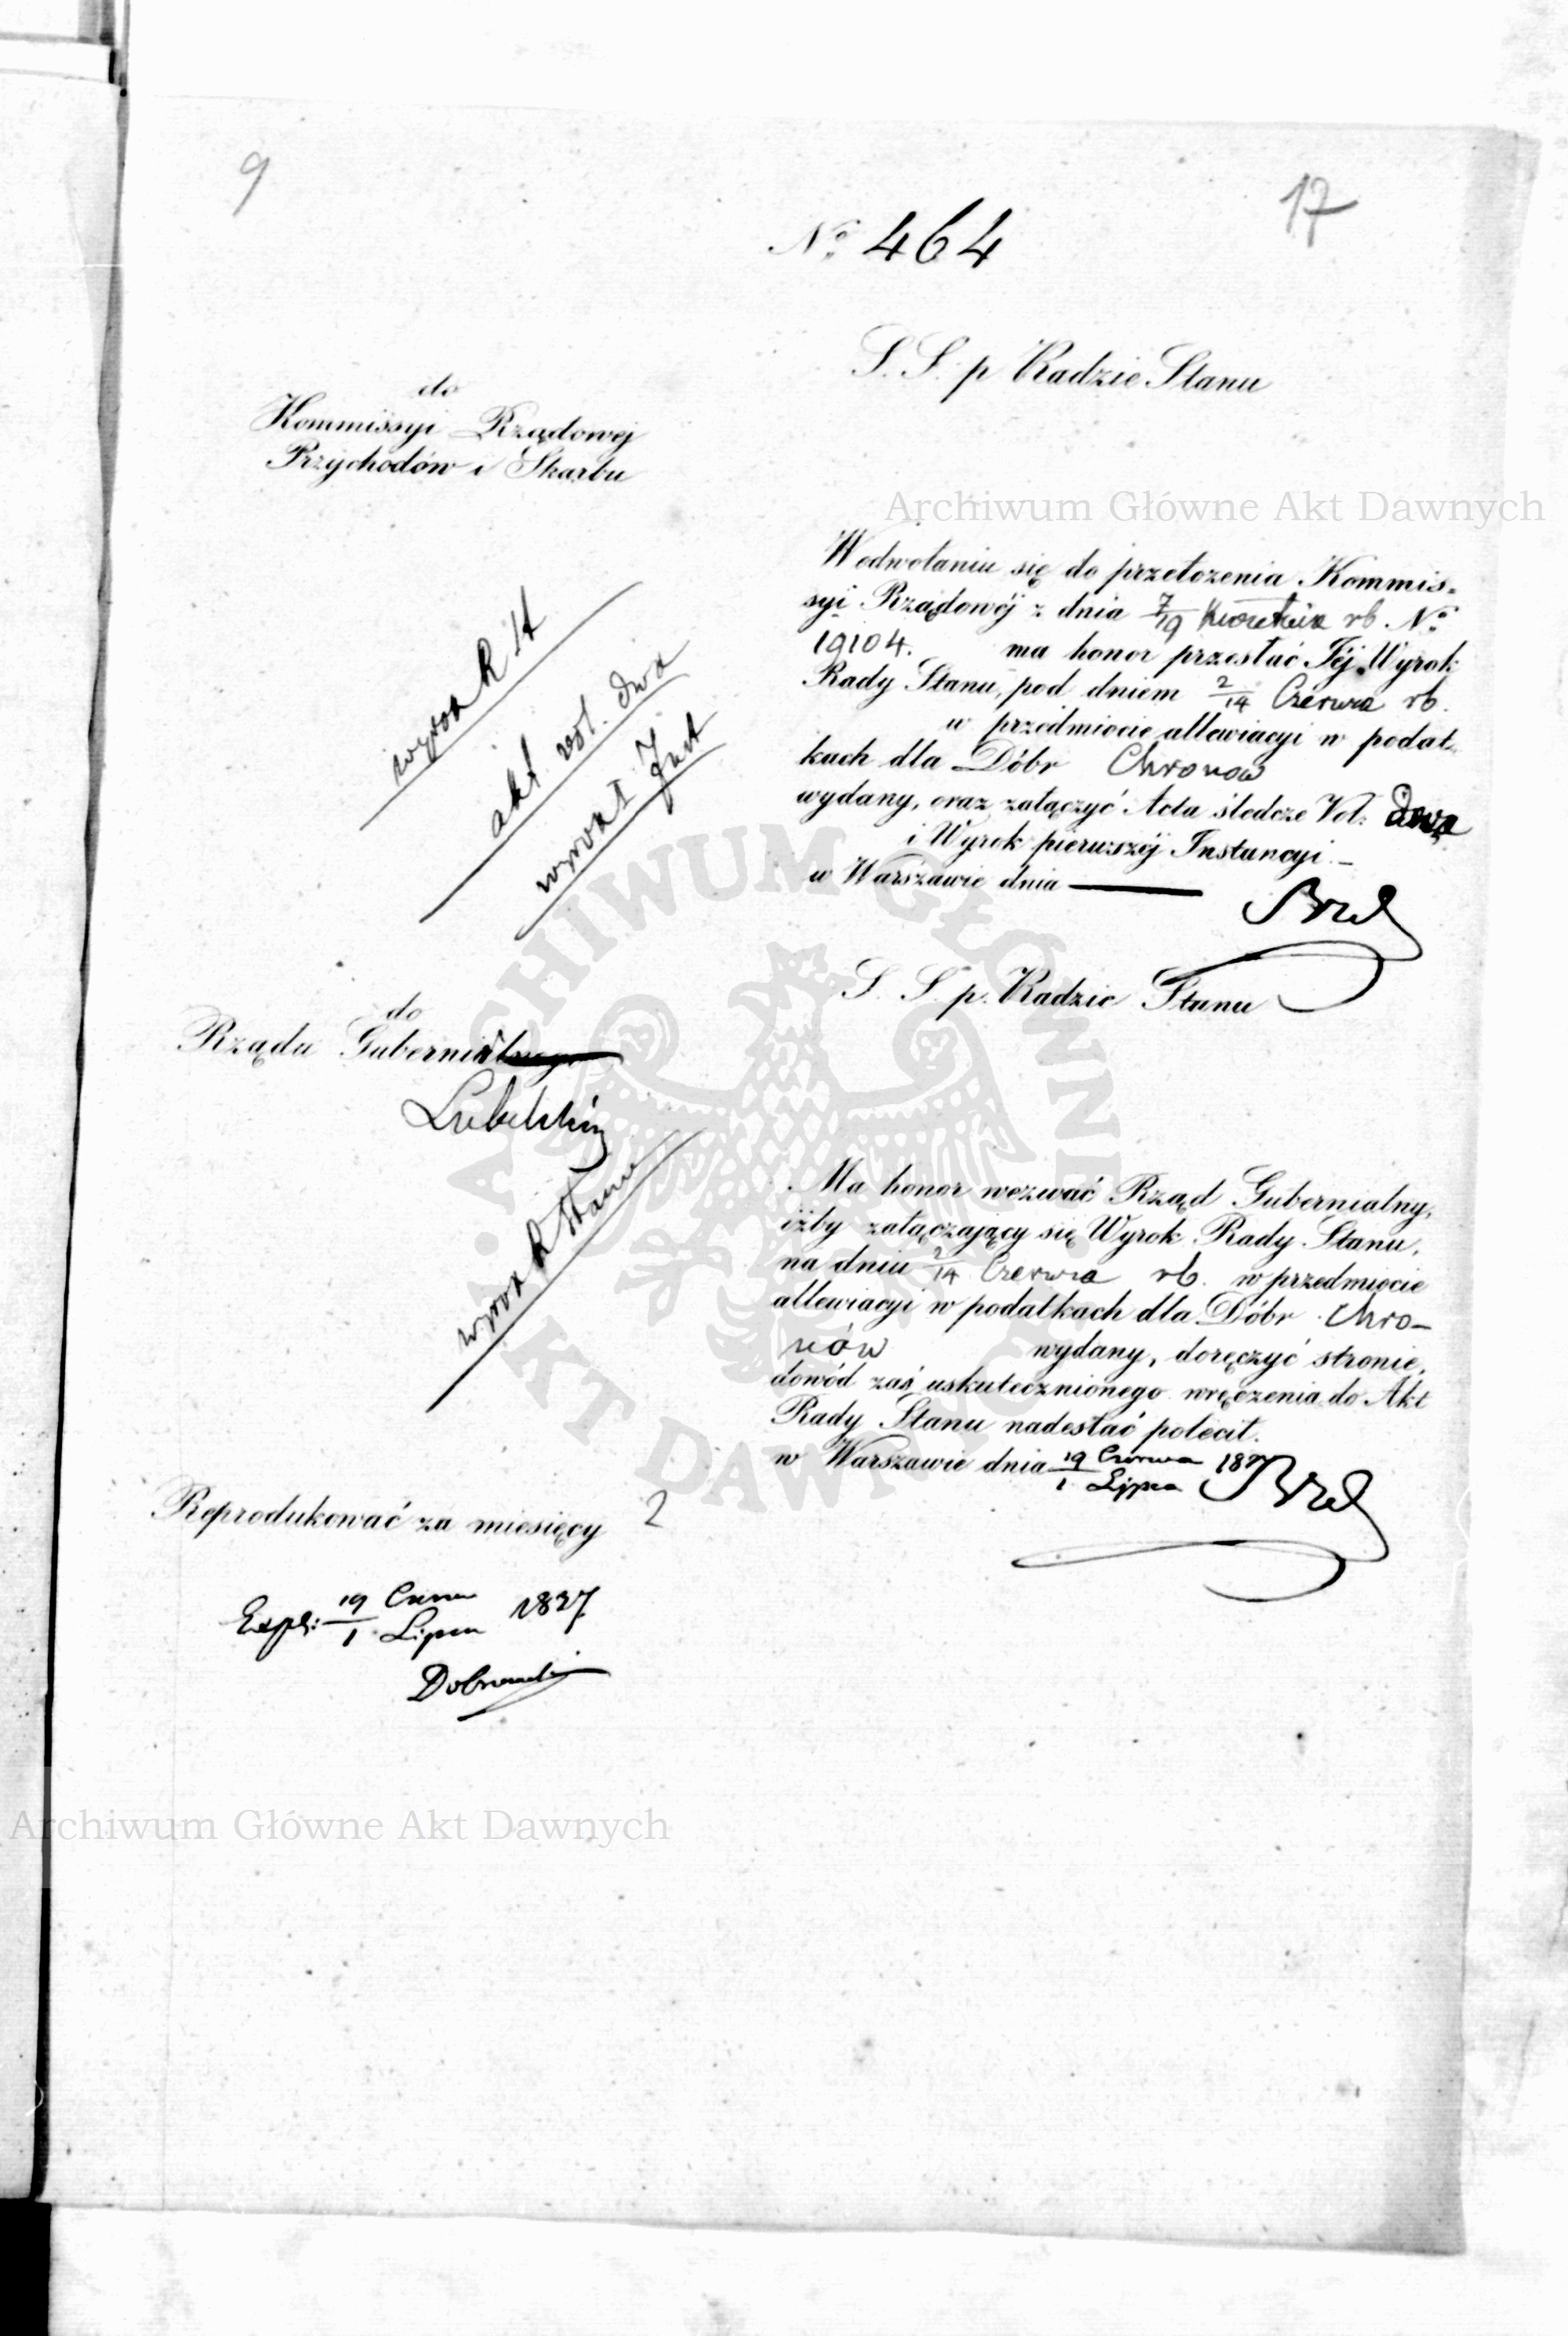 9
17
No 464
S. S. p Radzie Stanu
do
Kommissyi Rządowej
Przychodów i Skarbu
Archiwum Główne Akt Dawnych
W odwołaniu się do przełożenia Kommis=
syi Rządowéj z dnia 7/19 Kwietnia rb. No
19104. ma honor przesłać Jéj Wyrok
Rady Stanu, pod dniem 2/14 Czerwca rb.
w przedmiocie allewiacyi w podat=
kach dla Dóbr Chronow
wydany, oraz załączyć Acta śledcze Vol: dwa
i Wyrok pierwszéj Instancyi. –
w Warszawie dnia
wyrok R St
akt. vol. dwa
wyrok I Inst
S. S. p. Radzie Stanu
do
Rządu Gubernialnego
Lubelskiego
wyrok R Stanu
Ma honor wezwać Rząd Gubernialny,
iżby załączający się Wyrok Rady Stanu,
na dniu 2/14 Czerwca rb. w przedmiocie
allewiacyi w podatkach dla Dóbr Chro–
nów wydany, doręczyć stronie,
dowód zaś uskutecznionego wręczenia do Akt
Rady Stanu nadesłać polecił.
w Warszawie dnia 19 Czerwca / 1 Lipca 1837
Reprodukować za miesięcy 2
Exp: 19 Czerw / 1 Lipca 1837
ARCHIWUM GŁÓWNE AKT DAWNYCH
Archiwum Główne Akt Dawnych